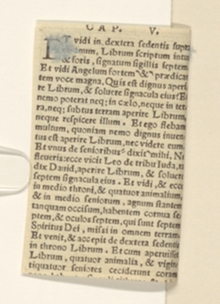 CAP. V.
ET vidi in dextera sedentis supra
thronum, Librum scriptum intus
& foris, signatum sigillis septem.
Et vidi Angelum fortem & prædican
tem voce magna, Quis est dignus aperi
re Librum, & soluere signacula eius? Et
nemo poterat neq; in cælo, neque in ter
ra, neq; subtus terram aperire Librum,
neque respicere illum. Et ego flebam
multum, quoniam nemo dignus inuen
tus est aperire Librum, nec videre eum.
Et vnus de senioribus dixit mihi, Ne
fleueris: ecce vicit Leo de tribu Iuda, ra
dix Dauid, aperire Librum, & soluere
septem signacula eius. Et vidi, & ecce
in medio throni, & quatuor animalium,
& in medio seniorum, agnum stantem
tanquam occisum, habentem cornua se
ptem, & oculos septem, qui sunt septem
Spiritus Dei, missi in omnem terram.
Et venit, & accepit de dextera sedentis
in throno Librum. Et cum aperuisset
Librum, quatuor animalia, & viginti
quatuor seniores ceciderunt coram